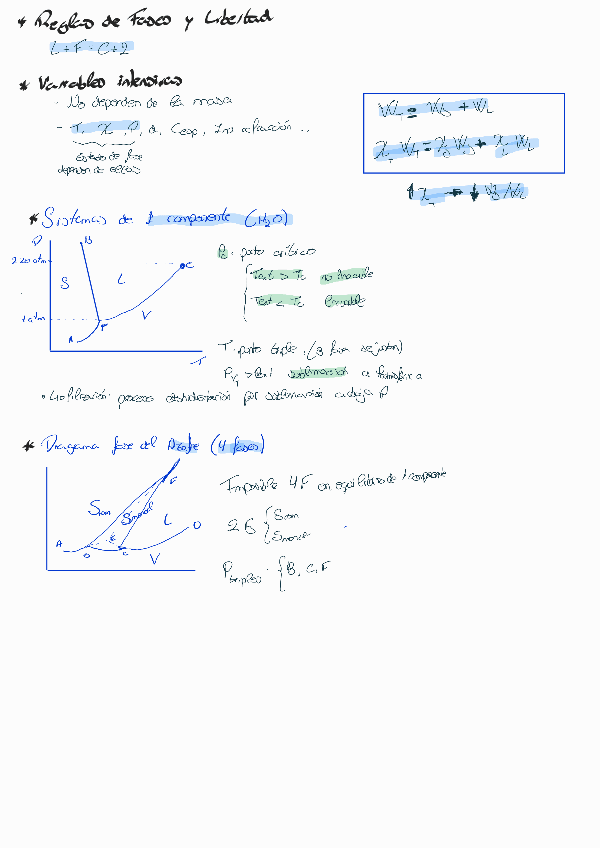 * Reglas de Fases y Libertad
L + F = C + 2
* Variables intensivas
- No dependen de la masa
- T, X, P, d, Cesp, Ind refracción ..
Estado de fase
depende de ellas
W_T = W_S + W_L
X_T W_T = X_S W_S + X_L W_L
↑ X_T → ↓ W_S/W_L
* Sistemas de 1 componente (H2O)
P
B
220 atm
C
S
L
1 atm
T
V
A
T
Pc: punto crítico
Text > Tc no licuable
Text < Tc licuable
T: punto triple, (3 fases se juntan)
sublimación
• Liofilización: proceso deshidratación por sublimación a baja P
* Diagrama fase del Azufre (4 fases)
F
Srom
Smonocl
L
A
B
E
C
D
V
Imposible 4F en equilibrio de 1 componente
2S { Srom
Smonocl
P triples: { B, C, F